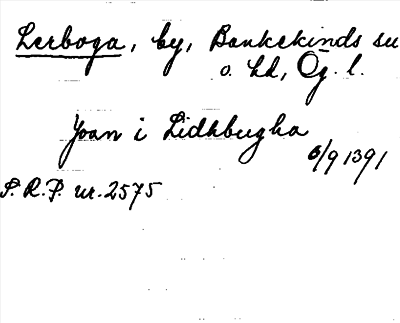 Lerboga, by, Bankekinds su
o. hd, Ög. l.
Joan i Lidhbugha
6/9 1391
S. R. P. nr. 2575